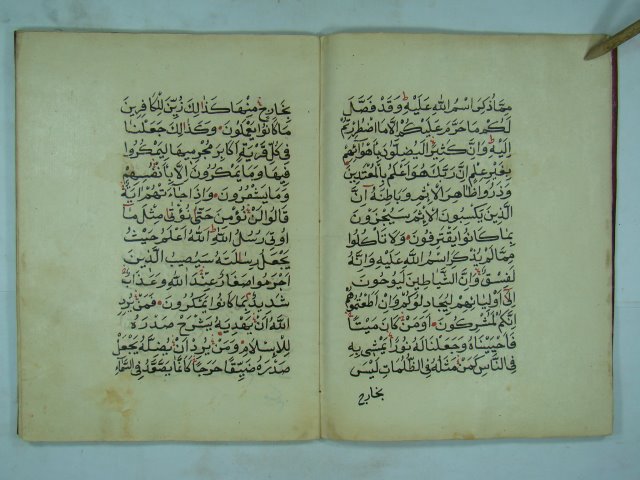 مِمَّا ذُكِرَ اسْمُ اللهِ عَلَيْهِ وَقَدْ فَصَّلَ
لَكُمْ مَا حَرَّمَ عَلَيْكُمْ اِلَّا مَا اضْطُرِرْتُمْ
اِلَيْهِ وَاِنَّ كَثِيرًا لَيُضِلُّونَ بِاَهْوَائِهِمْ
بِغَيْرِ عِلْمٍ اِنَّ رَبَّكَ هُوَ اَعْلَمُ بِالْمُعْتَدِينَ
وَذَرُوا ظَاهِرَ الْاِثْمِ وَبَاطِنَهُ اِنَّ
الَّذِينَ يَكْسِبُونَ الْاِثْمَ سَيُجْزَوْنَ
بِمَا كَانُوا يَقْتَرِفُونَ وَلَا تَأْكُلُوا
مِمَّا لَمْ يُذْكَرِ اسْمُ اللهِ عَلَيْهِ وَاِنَّهُ
لَفِسْقٌ وَاِنَّ الشَّيَاطِينَ لَيُوحُونَ
اِلَى اَوْلِيَائِهِمْ لِيُجَادِلُوكُمْ وَاِنْ اَطَعْتُمُوهُمْ
اِنَّكُمْ لَمُشْرِكُونَ اَوَمَنْ كَانَ مَيْتًا
فَاَحْيَيْنَاهُ وَجَعَلْنَا لَهُ نُورًا يَمْشِي بِهِ
فِي النَّاسِ كَمَنْ مَثَلُهُ فِي الظُّلُمَاتِ لَيْسَ
بخارج
بِخَارِجٍ مِنْهَا كَذَالِكَ زُيِّنَ لِلْكَافِرِينَ
مَا كَانُوا يَعْمَلُونَ وَكَذَالِكَ جَعَلْنَا
فِي كُلِّ قَرْيَةٍ اَكَابِرَ مُجْرِمِيهَا لِيَمْكُرُوا
فِيهَا وَمَا يَمْكُرُونَ اِلَّا بِاَنْفُسِهِمْ
وَمَا يَشْعُرُونَ وَاِذَا جَاءَتْهُمْ اٰيَةٌ
قَالُوا لَنْ نُؤْمِنَ حَتَّى نُؤْتَى مِثْلَ مَا
اُوتِيَ رُسُلُ اللهِ اَللهُ اَعْلَمُ حَيْثُ
يَجْعَلُ رِسَالَتَهُ سَيُصِيبُ الَّذِينَ
اَجْرَمُوا صَغَارٌ عِنْدَ اللهِ وَعَذَابٌ
شَدِيدٌ بِمَا كَانُوا يَمْكُرُونَ فَمَنْ يُرِدِ
اللهُ اَنْ يَهْدِيَهُ يَشْرَحْ صَدْرَهُ
لِلْاِسْلَامِ وَمَنْ يُرِدْ اَنْ يُضِلَّهُ يَجْعَلْ
صَدْرَهُ ضَيِّقًا حَرَجًا كَاَنَّمَا يَصَّعَّدُ فِي السَّمَاءِ